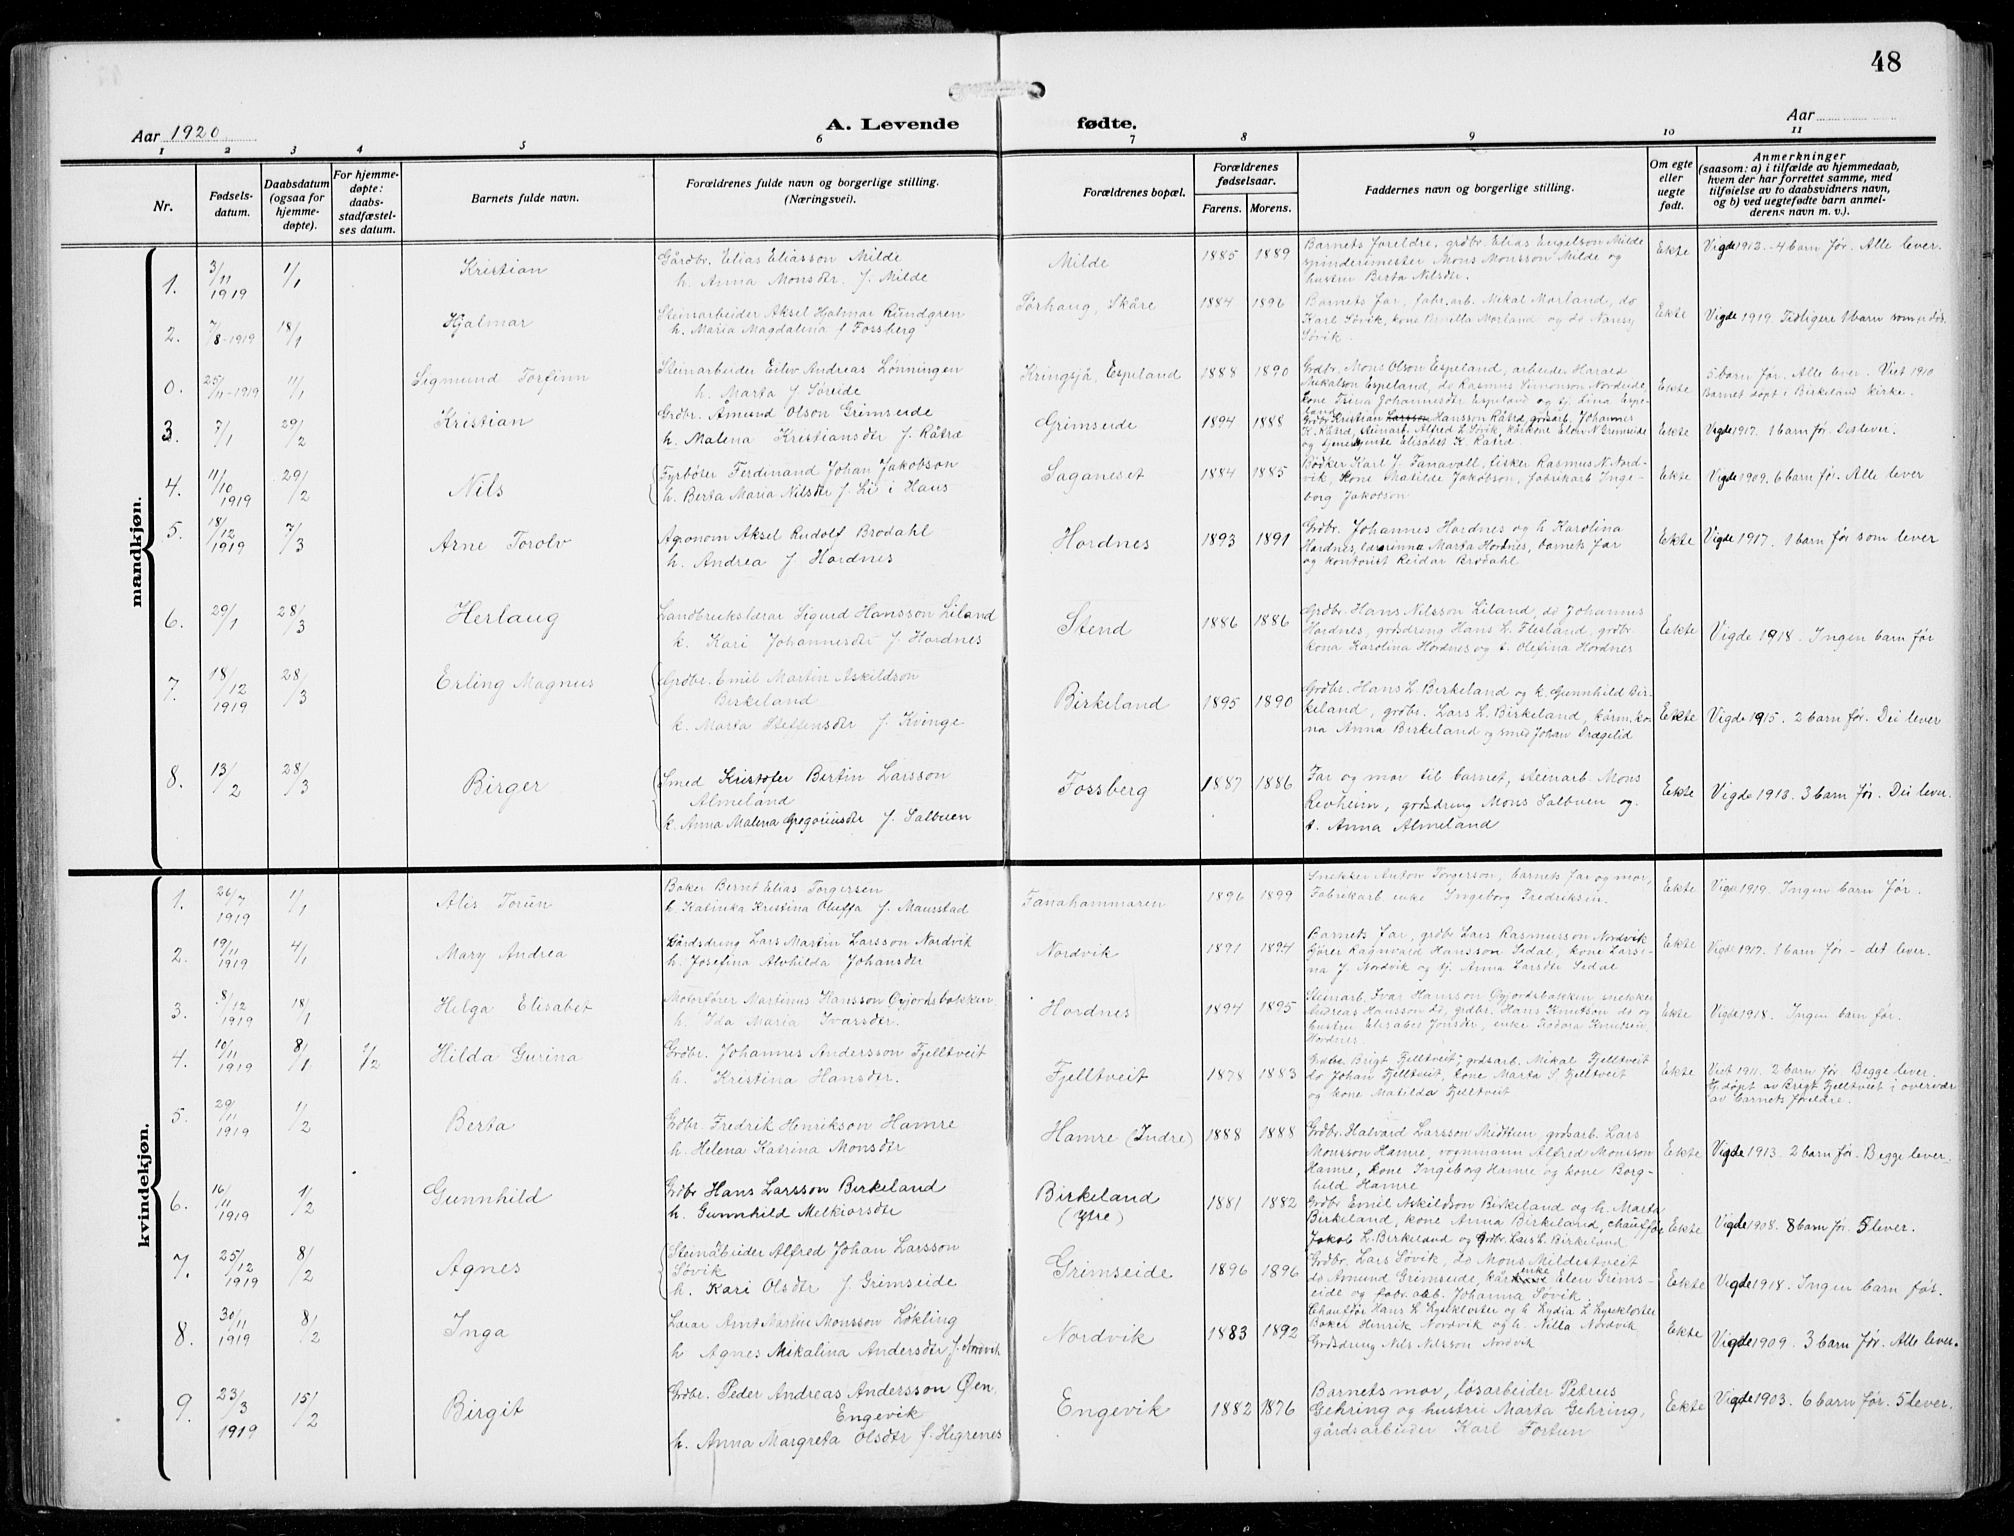 48
Aar 1920
A. Levende fødte.
Aar
1 2 3 4 5 6 7 8 9 10 11
Nr.
Fødsels-
datum.
Daabsdatum
(ogsaa for
hjemme-
døpte).
For hjemme-
døpte:
daabs-
stadfæstel-
ses datum.
Barnets fulde navn.
Forældrenes fulde navn og borgerlige stilling.
(Næringsvei).
Forældrenes bopæl.
Forældrenes
fødselsaar.
Farens. Morens.
Faddernes navn og borgerlige stilling.
Om egte
eller
uegte
født.
Anmerkninger
(saasom: a) i tilfælde av hjemmedaab,
hvem der har forrettet samme, med
tilføielse av to daabsvidners navn,
og b) ved uegtefødte barn anmel-
derens navn m. v.).
mandkjøn.
1. 3/11 1919 1/1 Kristian
Gårdbr. Elias Eliasson Milde
h. Anna Monsdtr. f. Milde
Milde 1885 1889
Barnets foreldre, grdbr. Elias Engelson Milde
spinderimester Mons Monsson Milde og
hustru Berta Nilsdtr.
Ekte Vigde 1912. 4 barn før. Alle lever.
2. 7/8-1919 18/1 Hjalmar
Steinarbeider Aksel Halmar Rundgren
h. Maria Magdalina f Fossberg
Sørhaug, Skåre 1884 1896
Barnets far, fabr.arb. Mikal Morland, do
Karl Søvik, kone Morland og do Nansy
Søvik.
Ekte Vigde 1919. Tidligere 1 barn som er død.
0. 25/11-1919 11/1 Sigmund Torfinn
Steinarbeider Eilev Andreas Lønningen
h. Marta f. Søreide
Kringsjå, Espeland 1888 1890
Grdbr. Mons Olson Espeland, arbeider Harald
Mikalson Espeland, do Rasmus Simonson Nordeide
kone Johannesdtr Espeland og tj. Lina Espe-
land
Ekte 5 barn før. Alle lever. Viet 1910
Barnet døpt i Birkeland kirke.
3. 7/1 29/2 Kristian
Grdbr. Åmund Olson Grimseide
h. Malena Kristiansdtr f. Råtræ
Grimseide 1894 1888
Grdbr Kristian Larsson Hansson Råtræ, grdsarb. Johannes
K. Råtræ, steinarb. Alfred L Søvik, kårkone Elen N Grimseide
og tjenestjente Elisabet K. Råtræ
Ekte Vigde 1917. 1 barn før. Det lever.
4. 11/10 1919 29/2 Nils
Fyrbøter Ferdinand Johan Jakobson
h. Berta Maria Nilsdtr f. Li i Haus
Saganeset 1884 1885
Bødker Karl J. Fanavoll, fisker Rasmus N. Nord-
vik, kone Matilde Jakobson, fabrikarb. Inge-
borg Jakobson
Ekte Vigde 1909. 6 barn før. Alle lever
5. 18/12 1919 7/3 Arne Torolv
Agronom Aksel Rudolf Brodahl
h. Andrea f Hordnes
Hordnes 1893 1891
Grdbr. Johannes Hordnes og h Karolina
Hordnes, lærerinna Marta Hordnes, barnets far
og kontorist Reidar Brodahl
Ekte Vigde 1917. 1 barn før som lever
6. 29/1 28/3 Herlaug
Landbrukslærar Sigurd Hansson Liland
k. Kari Johannesdtr f. Hordnes
Stend 1886 1886
Grdbr. Hans Nilsson Liland, do Johannes
Hordnes, grdsdreng Hans L. Flesland, grdbr.
kona Karolina Hordnes og t. Olefina Hordnes
Eekte Vigde 1918. Ingen barn før
7. 18/12 1919 28/3 Erling Magnus
Grdbr. Emil Martin Askildson
Birkeland
k. Marta Steffensdtr f. Kvinge
Birkeland 1895 1890
Grdbr. Hans L. Birkeland og k. Gunnhild Bir-
keland, grdbr. Lars L. Birkeland, kårm. ko-
na Anna Birkeland og smed Johan Drægelid
Eekte Vigde 1915. 2 barn før. Dei lever
8. 13/2 28/3 Birger
Smed Kristofer Bertin Larsson
Almeland
k. Anna Malena Gregoriusdtr f. Salbuen
Fossberg 1887 1886
Far og mor til barnet, steinarb. Mons
Revheim, grdsdreng Mons Salbuen og
t. Anna Almeland
Eekte Vigde 1913. 3 barn før. Dei lever.
kvindekjøn.
1. 26/7 1919 1/1 Alis Torun
Baker Bernt Elias Torgersen
h. Katinka Kristina Oluffa f. Maurstad
Fanahammaren 1896 1899
Snekker Anton Torgerson, barnets far og mor,
Fabrikarb. enke Ingeborg Fredriksen.
Ekte Vigde 1919. Ingen barn før.
2. 19/11 1919 4/1 Mary Andrea
Gårdsdreng Lars Martin Larsson Nordvik
h. Josefina Alvhilda Johansdtr
Nordvik 1891 1894
Barnets far, grdbr Lars Rasmusson Nordvik
kjører Ragnvald Hansson Sedal, kone Larsi-
na J. Nordvik og tj. Anna Larsdtr Sedal
Ekte Vigde 1917. 1 barn før - det lever.
3. 8/12 1919 18/1 Helga Elisabet
Motorfører Martinus Hansson Øyjordsbakken.
h. Ida Maria Ivarsdtr.
Hordnes 1894 1895
Steinarb. Ivar Hansson Øyjordsbakken, snekker
Andreas Hansson do, grdbr. Hans Knutson do og
hustru Elisabet Jonsdtr, enke Todora Knutsen,
Hordnes
Ekte Vigde 1918. Ingen barn før.
4. 10/11 1919 8/1 1/2 Hilda Gurina
Grdbr. Johannes Andersson Fjelltveit
h. Kristina Hansdtr.
Fjelltveit 1878 1883
Grdbr Brigt Fjelltveit, grdsarb. Mikal Fjelltveit
do Johan Fjelltveit, kone Marta S Fjelltveit
og kone Matilda Fjelltveit
Ekte Viet 1911. 2 barn før Begge lever.
Hj.døpt av Brigt Fjelltveit i overvær
av barnets foreldre.
5. 29/11 1919 1/2 Berta
Grdbr. Fredrik Henrikson Hamre
h. Helena Katrina Monsdtr
Hamre (Indre) 1888 1888
Grdbr. Halvard Larsson Midttun grdsarb. Lars
Monsson Hamre, vognmann Alfred Monsson
Hamre, kone Ingeborg Hamre og kone Borg-
hild Hamre
Ekte Vigde 1913. 2 barn før. Begge lever.
6. 16/11 1919 1/2 Gunnhild
Grdbr Hans Larsson Birkeland
h. Gunnhild Melkiorsdtr
Birkeland
(Ytre) 1881 1882
Grdbr Emil Askildson Birkeland og h. Marta
Birkeland, kone Anna Birkeland, chauffør
Jakob L. Birkeland og Grdbr. Lars L. Birkeland
Ekte Vigde 1908. 8 barn før. 5 lever.
7. 25/12 1919 8/2 Agnes
Steinåbeider Alfred Johan Larsson
Søvik
h. Kari Olsdtr f. Grimseide
Grimseide 1896 1896
Grdbr. Lars Søvik, do Mons Mildestveit
do Amund Grimseide, kårkone enke Elen Grims-
eide og fabr. arb. Johanna Søvik.
Ekte Vigde 1918. Ingen barn før.
8. 30/11 1919 8/2 Inga
Lærar Arnt Martin Monsson Løkling
h Agnes Mikalina Andersdtr f. Nordvik
Nordvik 1883 1892
Chauffør Hans L Lysekloster og h Lydia L Lysekloster
Baker Henrik Nordvik og h. Nilla Nordvik
Grdsdreng Nils Nilsson Nordvik
Ekte Vigde 1909. 3 barn før. Alle lever.
9. 23/3 1919 15/2 Birgit
Grdbr. Peder Andreas Andersson Øen,
Engevik
h. Anna Margreta Olsdtr f. Hegrenes
Engevik 1882 1876
Barnets mor, løsarbeider Petrus
Gehring og hustru Marta Gehring,
gårdsarbeider Karl Fortun
Ekte Vigde 1903. 6 barn før. 5 lever.